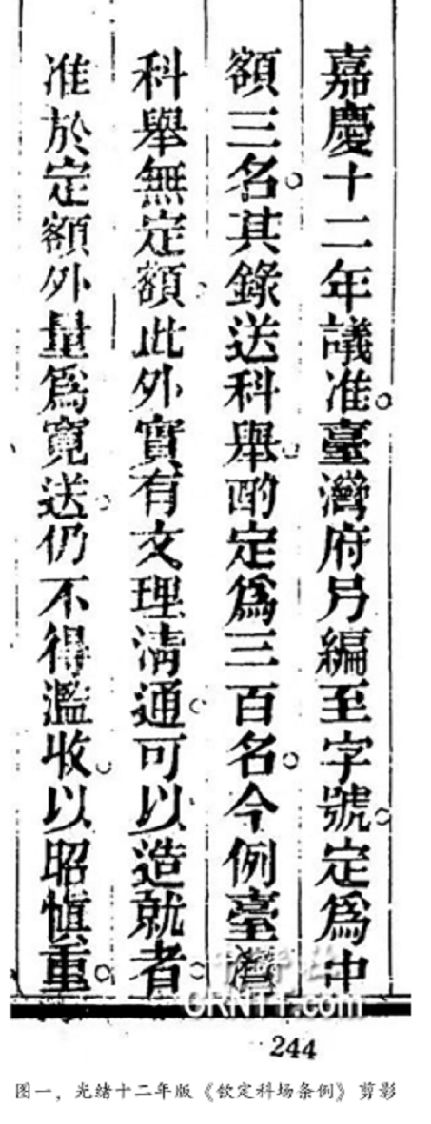 嘉慶十二年議准。臺灣府另編至字號。定爲中
額三名。其錄送科舉。酌定爲三百名。今例臺灣
科舉無定額。此外實有文理淸通。可以造就者。
准於定額外量爲寬送。仍不得濫收。以昭愼重。
CRNTT.com
244
图一，光绪十二年版《钦定科场条例》剪影